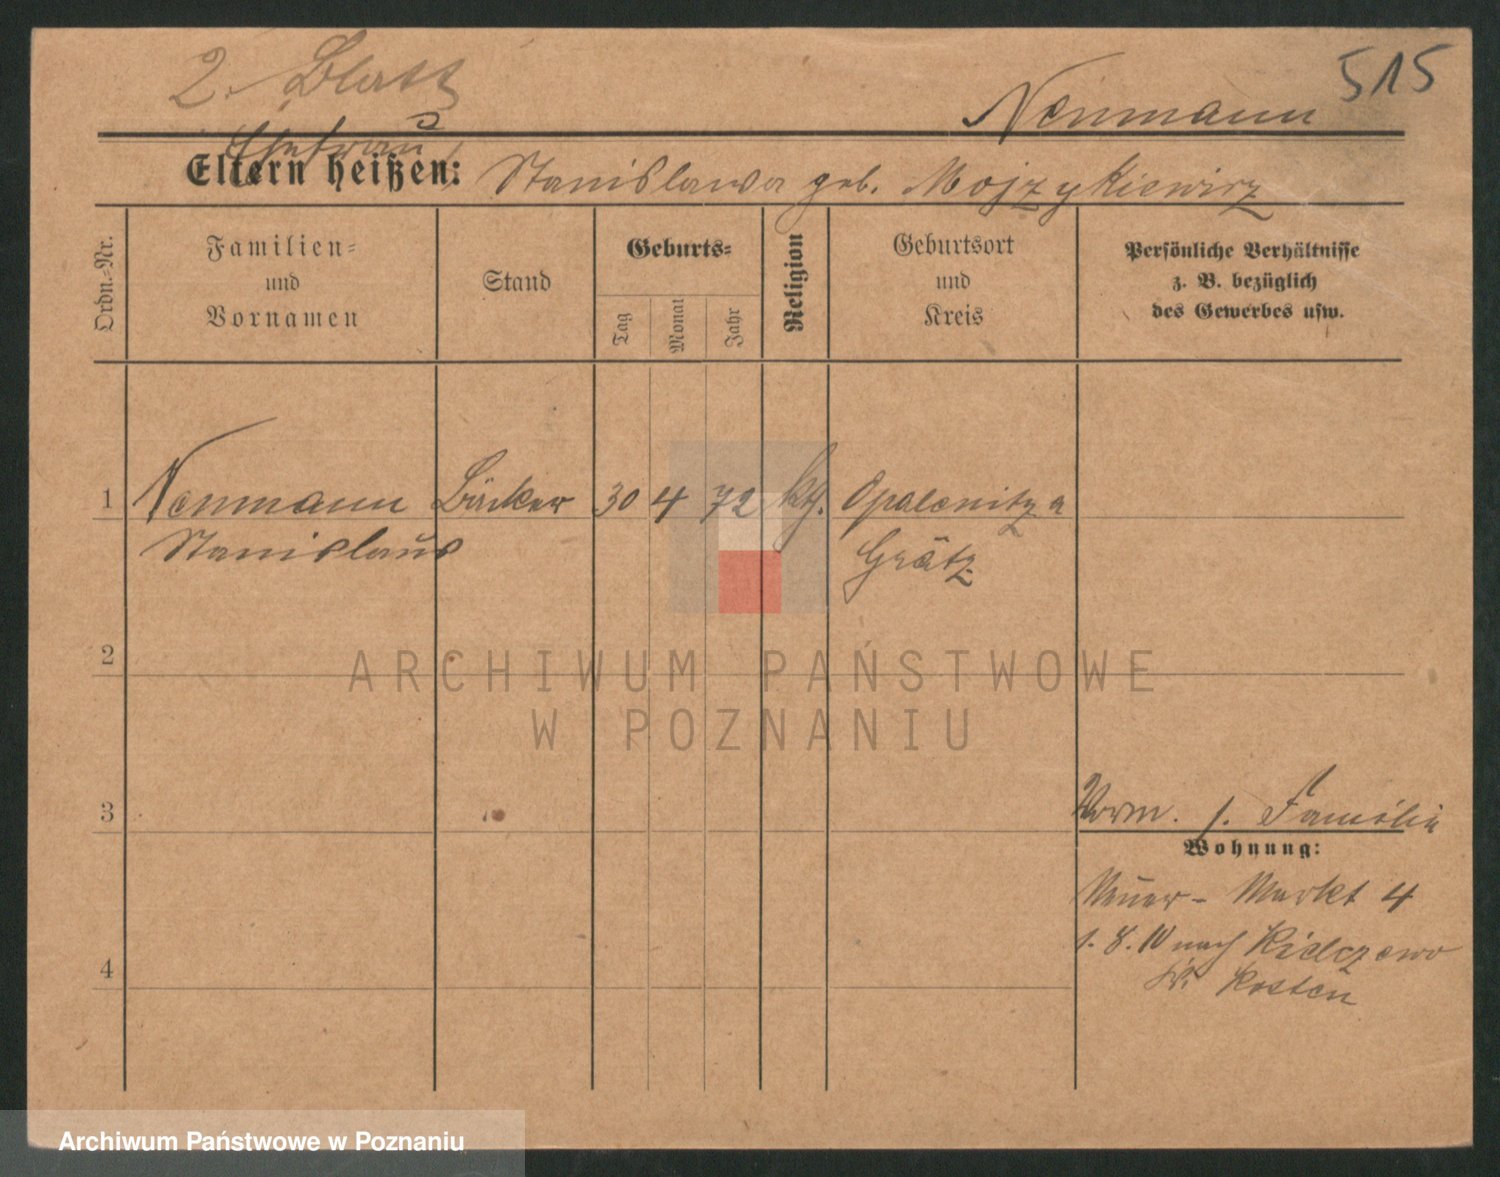 2. Blatt
515
Neumann
Ehefrau
Eltern heißen: Stanislawa geb. Mojzykiewicz
Ordn.-Nr.
Familien-
und
Vornamen
Stand
Geburts-
Tag
Monat
Jahr
Religion
Geburtsort
und
Kreis
Persönliche Verhältnisse
z. B. bezüglich
des Gewerbes usw.
1 Neumann Bäcker 30 4 72 kth. Opalenitza
Stanislaus Grätz
2
ARCHIWUM PAŃSTWOWE
W POZNANIU
3
Verm. s. Familie
Wohnung:
Neuer-Markt 4
1. 8. 10 nach Kielczewo
Kr. Kosten
4
Archiwum Państwowe w Poznaniu